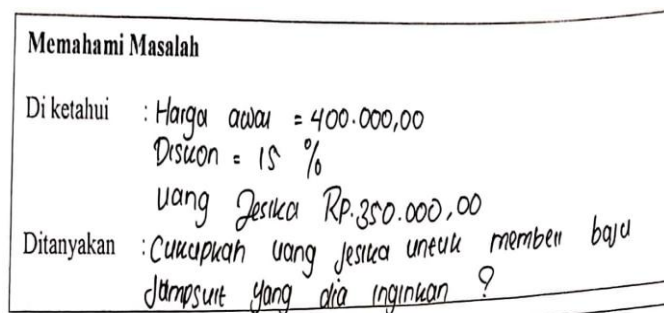 Memahami Masalah
Di ketahui : Harga awal = 400.000,00
Diskon = 15 %
uang Jesika Rp.350.000,00
Ditanyakan : Cukupkah uang jesika untuk membeli baju
Jumpsuit yang dia inginkan ?